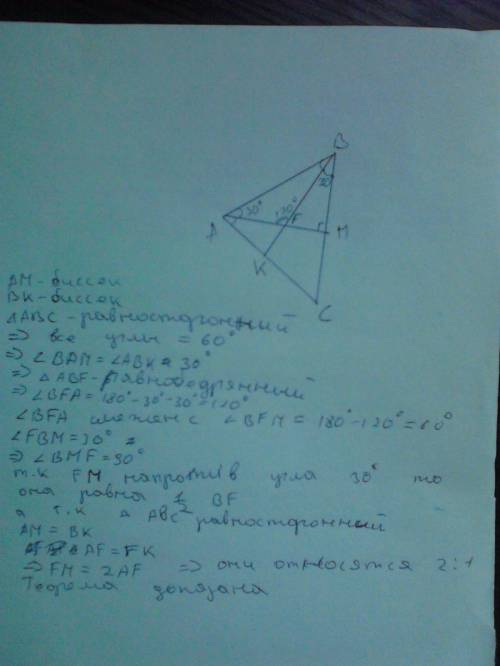 B
30°
30°
120°
F
A
M
K
C
AM - биссек
BK - биссек
△ABC - равносторонний
⇒ все углы = 60°
⇒ ∠BAM = ∠ABK = 30°
⇒ △ABF - равнобедрянний
⇒ ∠BFA = 180° - 30° - 30° = 120°
∠BFA смежен с ∠BFM = 180° - 120° = 60°
∠FBM = 30°
⇒ ∠BMF = 90°
т.к FM напротив угла 30° то
она равна 1/2 BF
а т.к △ ABC равносторонний
AM = BK
AF = FK
⇒ FM = 2AF ⇒ они относятся 2:1
Теорема доказана